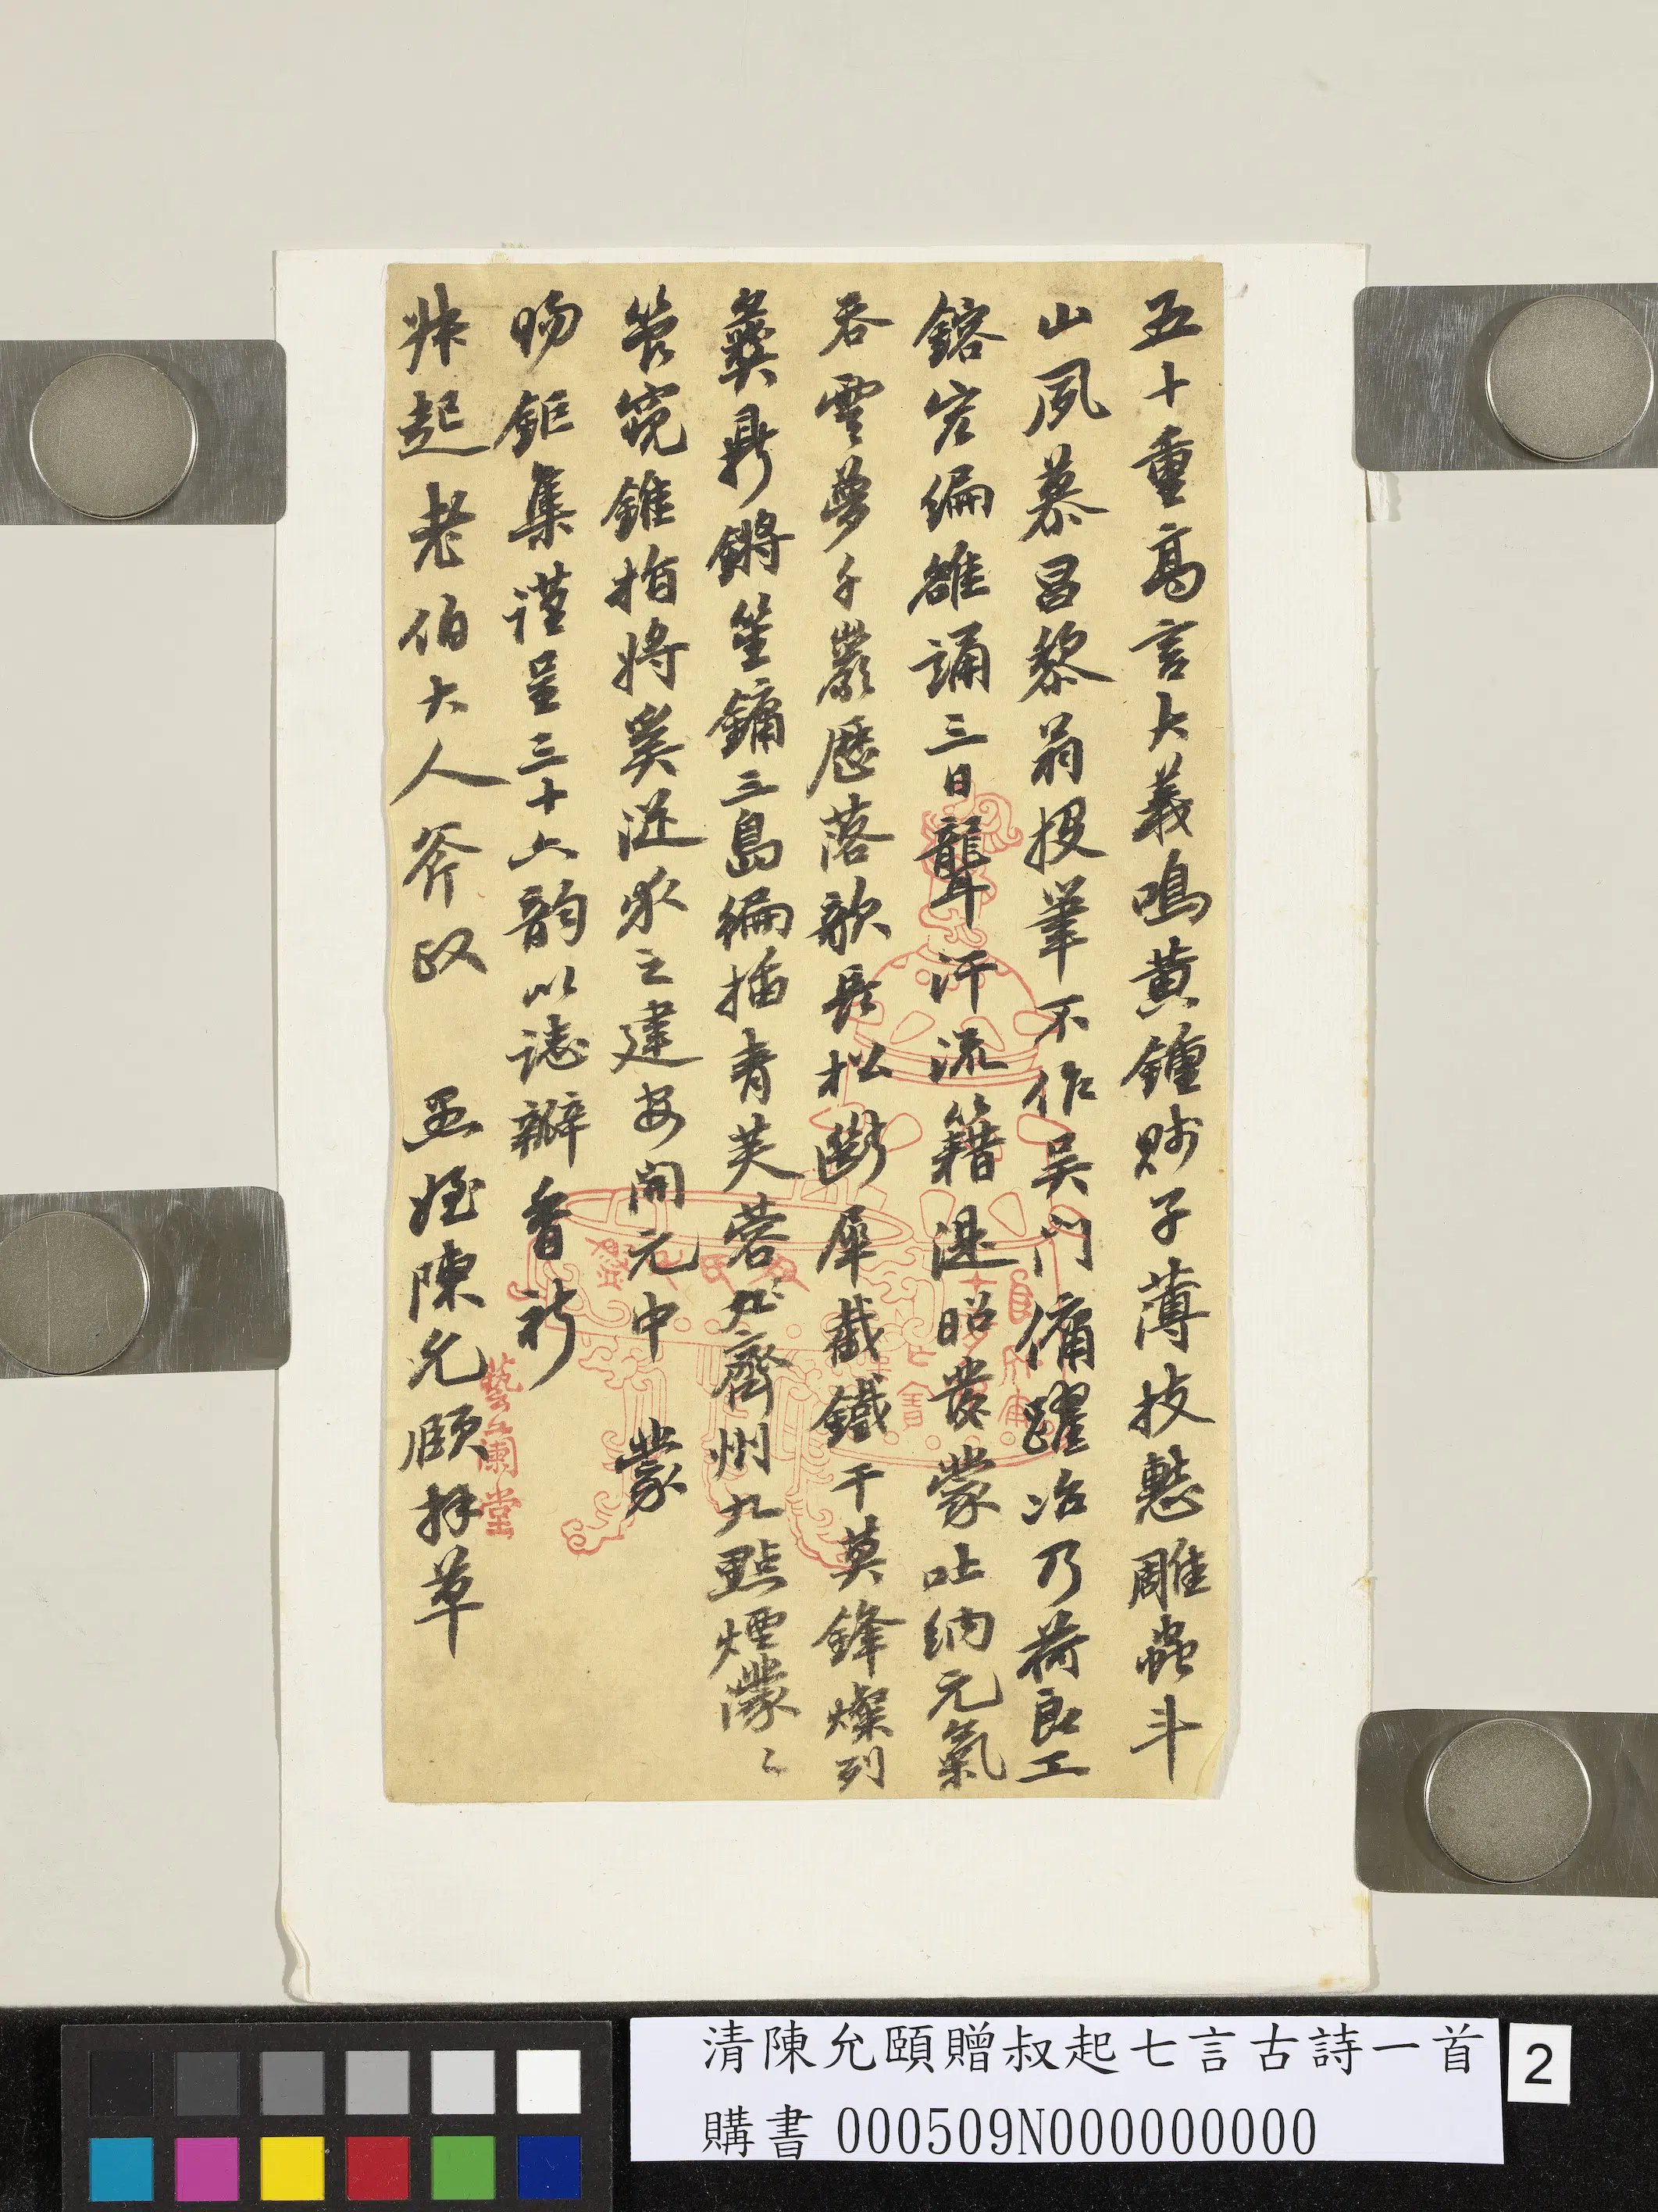 五十重高言大義鳴黃鍾眇子薄技慙雕蟲斗
山夙慕昌黎翁投筆不作吳門傭躍冶乃荷良工
鎔宏編雒誦三日聾汗流籍湜昭發蒙吐納元氣
吞雲夢千巖歷落歌長松斷犀截鐵干莫鋒燦列
彝鼎鏘笙鏞三島編插青芙蓉齊州九點煙濛〻
管窺錐指將奚從求之建安開元中 蒙
賜鉅集謹呈三十六韵以誌瓣香祈
尗起老伯大人斧政 愚姪陳允頤拜草
藝蘭堂
清陳允頤贈叔起七言古詩一首
購書 000509N000000000
2